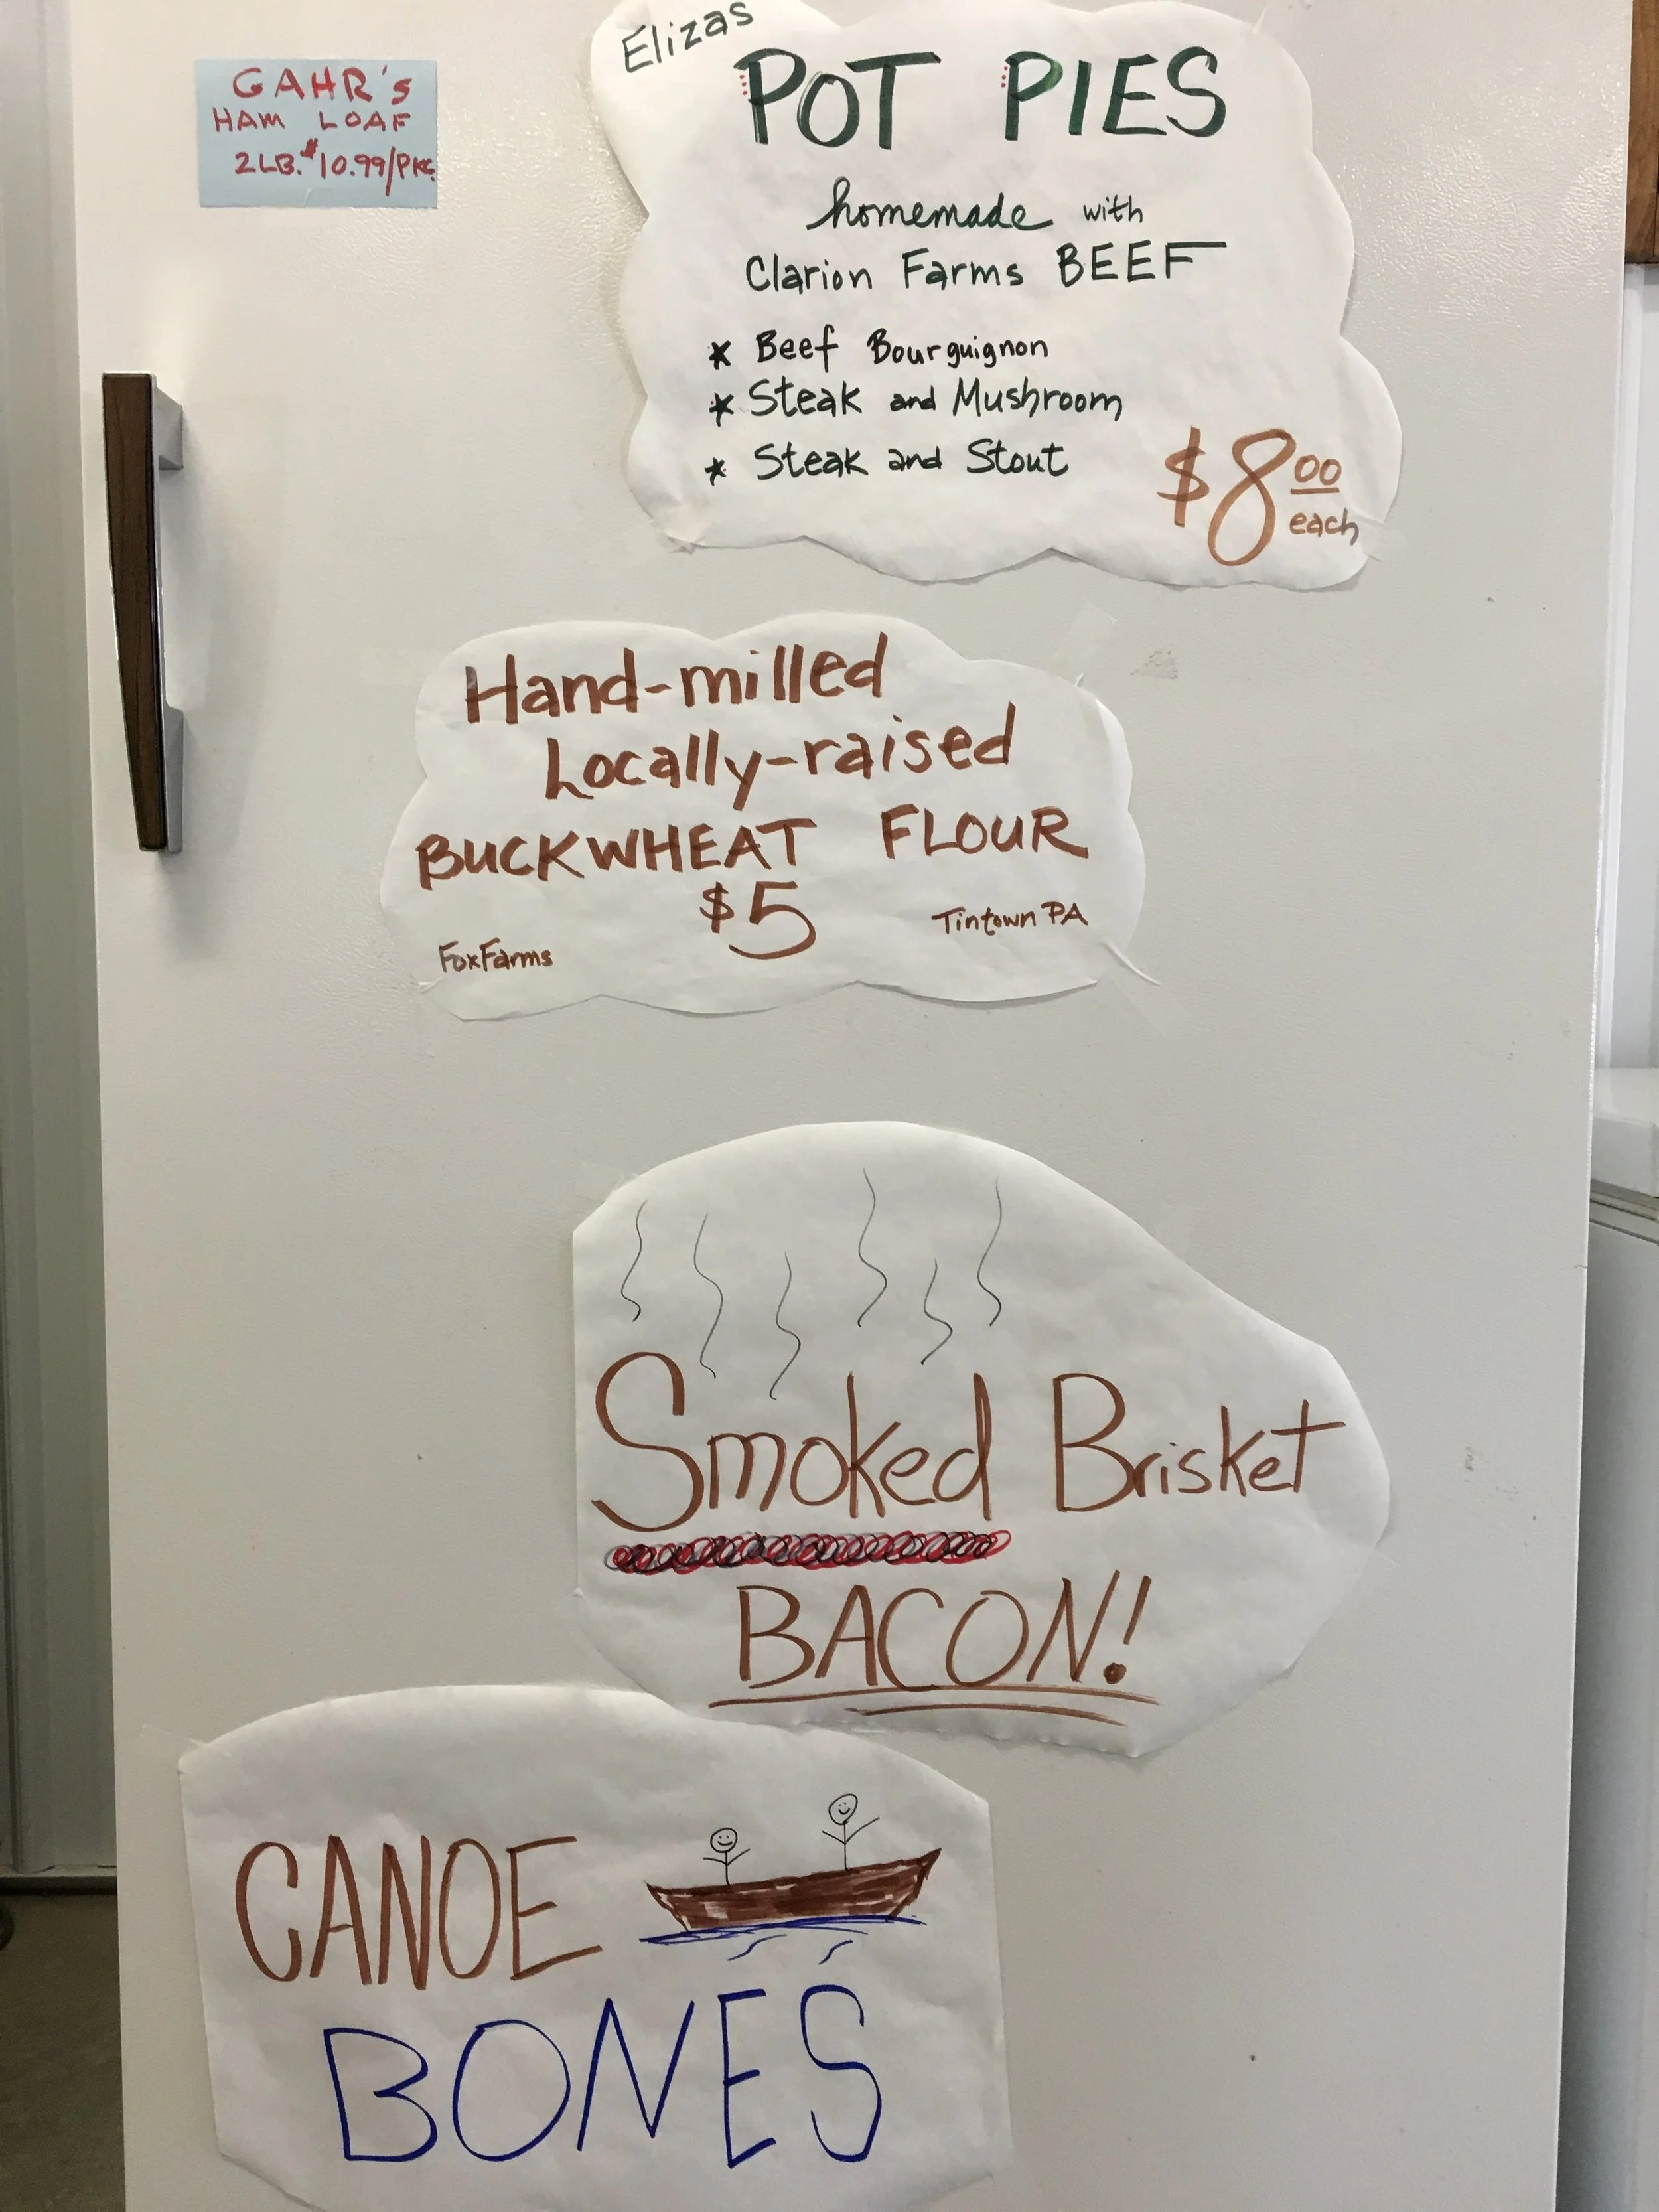 GAHR's
HAM LOAF
2LB. $10.99/PKG.
Elizas
POT PIES
homemade with
Clarion Farms BEEF
* Beef Bourguignon
* Steak and Mushroom
* Steak and Stout
$8 00
each
Hand-milled
Locally-raised
BUCKWHEAT FLOUR
$5
FoxFarms
Tintown PA
Smoked Brisket
BACON!
CANOE
BONES